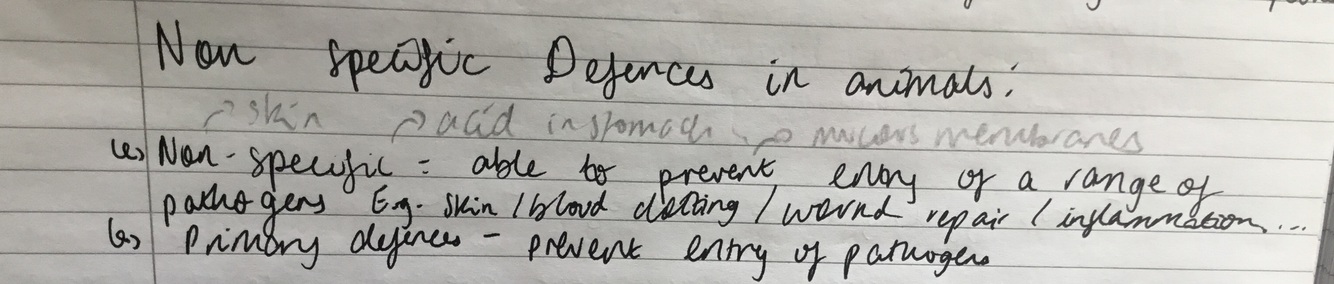 Non specific Defences in animals:
→ skin → acid in stomach → mucous membranes
(e) Non-specific = able to prevent entry of a range of
pathogens E.g. skin / blood clotting / wound repair / inflammation...
(b) Primary defences - prevent entry of pathogens